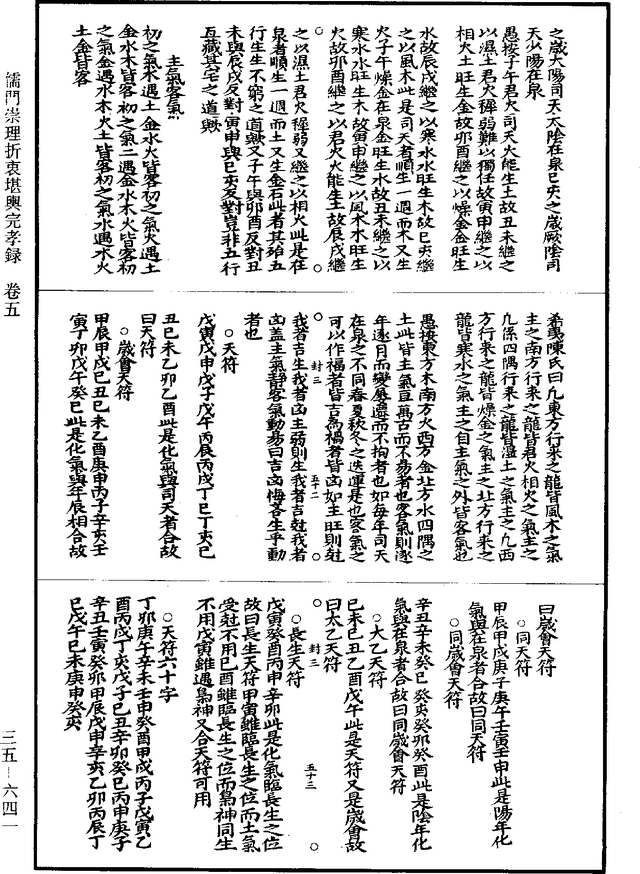 之歲太陽司天太陰在泉巳亥之歲厥陰司
天少陽在泉
愚按子午君火司天火能生土故丑未繼之
以濕土君火稺弱難以獨任故寅申繼之以
相火土旺生金故卯酉繼之以燥金金旺生
水故辰戌繼之以寒水水旺生木故巳亥繼
之以風木此是司天者順生一週而木又生
火子午燥金在泉金旺生水故丑未繼之以
寒水水旺生木故寅申繼之以風木木旺生
火故卯酉繼之以君火火能生土故辰戌繼
之以濕土君火稺弱又繼之以相火此是在
泉者順生一週而土又生金石此者其殆五
行生生不窮之道歟又子午與卯酉反對丑
未與辰戌反對寅申與巳亥反對豈非五行
互藏其宅之道歟
主氣客氣
初之氣木遇土金水火皆客初之氣火遇土
金水木皆客初之氣二遇金水木火皆客初
之氣金遇水木火土皆客初之氣水遇木火
土金皆客
希夷陳氏曰凢東方行來之龍皆風木之氣
主之南方行來之龍皆君火相火之氣主之
凢係四隅行來之龍皆濕土之氣主之凢西
方行來之龍皆燥金之氣主之北方行來之
龍皆寒水之氣主之自主氣之外皆客氣也
愚按東方木南方火西方金北方水四隅之
土此皆主氣亘萬古而不易者也客氣則逐
年逐月而變屢遷而不拘者也如每年司天
在泉之不同春夏秋冬之迭運是也客氣之
可以作福者皆吉爲禍者皆凶如主旺則尅
我者吉生我者凶主弱則生我者吉尅我者
凶盖主氣靜客氣動易曰吉凶悔吝生乎動
者也
○天符
戊寅戊申戊子戊午丙辰丙戌丁巳丁亥己
丑己未乙卯乙酉此是化氣與司天者合故
曰天符
○歲會天符
甲辰甲戌己丑己未乙酉庚申丙子辛亥壬
寅丁卯戊午癸巳此是化氣與年辰相合故
曰歲會天符
○同天符
甲辰甲戌庚子庚午壬寅壬申此是陽年化
氣與在泉者合故曰同天符
○同歲會天符
辛丑辛未癸巳癸亥癸卯癸酉此是陰年化
氣與在泉者合故曰同歲會天符
○太乙天符
己未己丑乙酉戊午此是天符又是歲會故
曰太乙天符
○長生天符
戊寅癸酉丙申辛卯此是化氣臨長生之位
故曰長生天符甲寅雖臨長生之位而土氣
受尅不用己酉雖臨長生之位而梟神同生
不用戊寅雖遇梟神又合天符可用
○天符六十字
丁卯庚午辛未壬申癸酉甲戌丙子戊寅乙
酉丙戌丁亥戊子己丑辛卯癸巳丙申庚子
辛丑壬寅癸卯甲辰戊申辛亥乙卯丙辰丁
巳戊午己未庚申癸亥
封三
五十二
封三
五十三
儒門崇理折衷堪輿完孝錄　卷五
三五－六四一